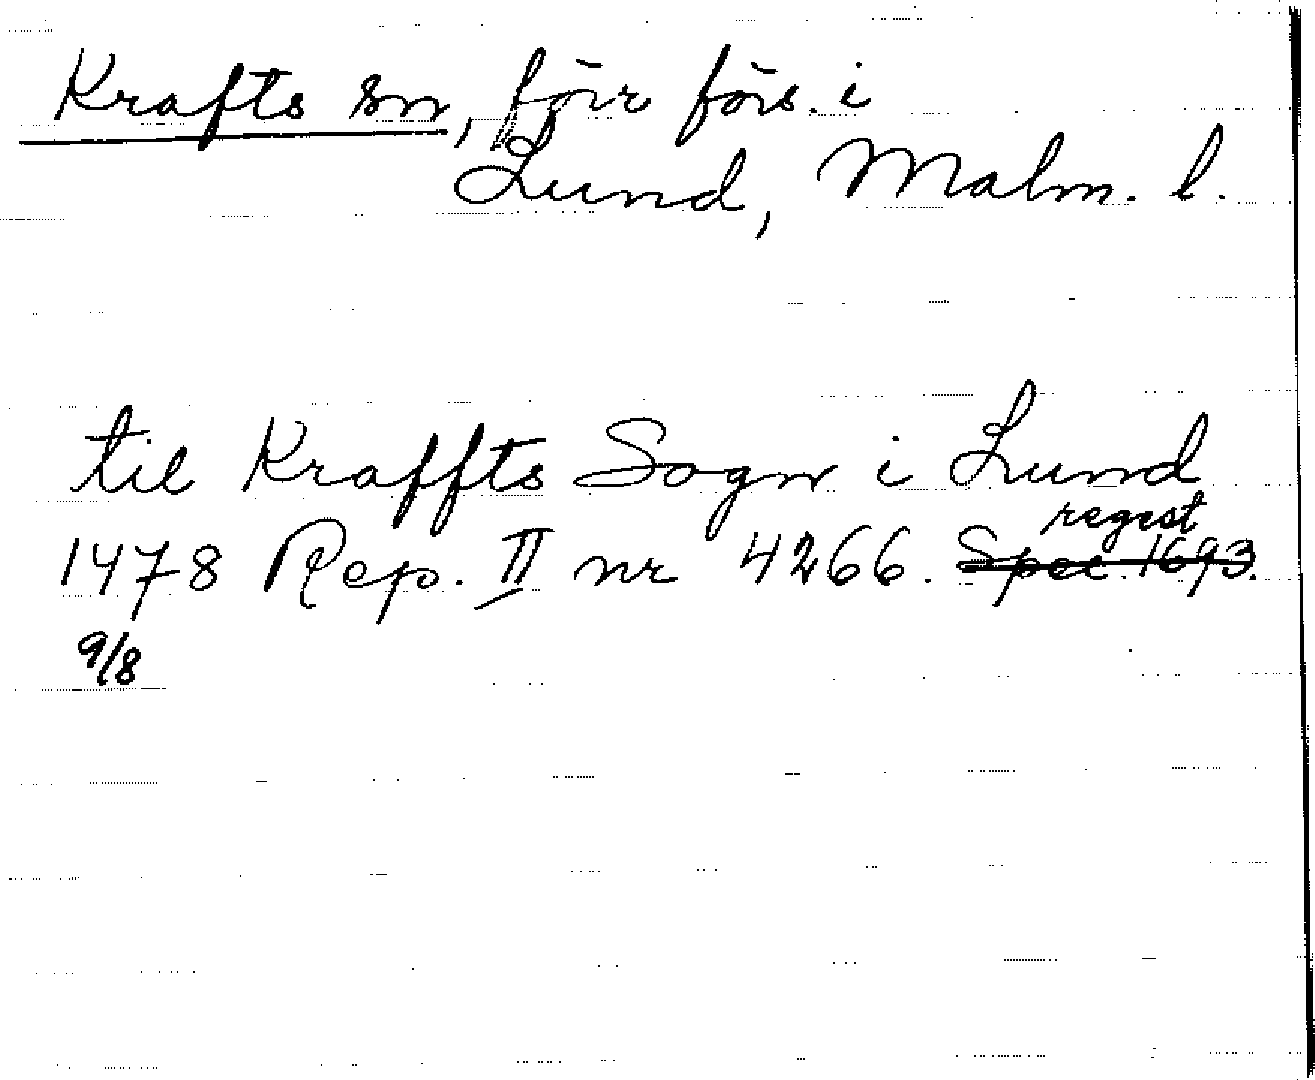 Krafts sn, förr förs. i
Lund, Malm. l.
til Kraffts Sogn i Lund
regest
1478 Rep. II nr 4266. Spec. 1693.
9/8